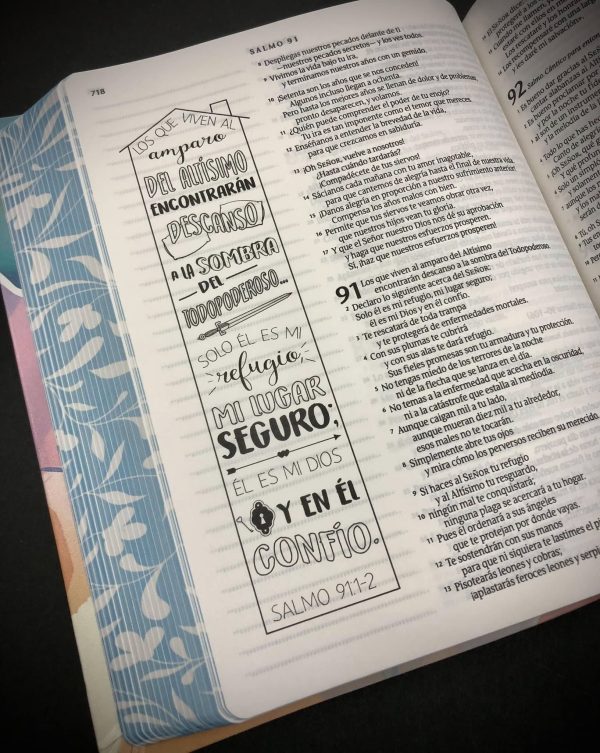 718
SALMO 91
LOS QUE VIVEN AL
amparo
DEL ALTÍSIMO
ENCONTRARÁN
DESCANSO
A LA SOMBRA
DEL
TODOPODEROSO...
SOLO ÉL ES MI
refugio,
MI LUGAR
SEGURO;
ÉL ES MI DIOS
Y EN ÉL
CONFÍO.
SALMO 91:1-2
8 Despliegas nuestros pecados delante de ti
—nuestros pecados secretos— y los ves todos.
9 Vivimos la vida bajo tu ira,
y terminamos nuestros años con un gemido.
10 ¡Setenta son los años que se nos conceden!
Algunos incluso llegan a ochenta.
Pero hasta los mejores años se llenan de dolor y de problemas;
pronto desaparecen, y volamos.
11 ¿Quién puede comprender el poder de tu enojo?
Tu ira es tan imponente como el temor que mereces.
12 Enséñanos a entender la brevedad de la vida,
para que crezcamos en sabiduría.
13 ¡Oh SEÑOR, vuelve a nosotros!
¿Hasta cuándo tardarás?
¡Compadécete de tus siervos!
14 Sácianos cada mañana con tu amor inagotable,
para que cantemos de alegría hasta el final de nuestra vida.
15 ¡Danos alegría en proporción a nuestro sufrimiento anterior!
Compensa los años malos con bien.
16 Permite que tus siervos te veamos obrar otra vez,
que nuestros hijos vean tu gloria.
17 Y que el Señor nuestro Dios nos dé su aprobación
y haga que nuestros esfuerzos prosperen.
Sí, ¡haz que nuestros esfuerzos prosperen!
91 Los que viven al amparo del Altísimo
encontrarán descanso a la sombra del Todopoderoso.
2 Declaro lo siguiente acerca del SEÑOR:
Solo él es mi refugio, mi lugar seguro;
él es mi Dios y en él confío.
3 Te rescatará de toda trampa
y te protegerá de enfermedades mortales.
4 Con sus plumas te cubrirá
y con sus alas te dará refugio.
Sus fieles promesas son tu armadura y tu protección.
5 No tengas miedo de los terrores de la noche
ni de la flecha que se lanza en el día.
6 No temas a la enfermedad que acecha en la oscuridad,
ni a la catástrofe que estalla al mediodía.
7 Aunque caigan mil a tu lado,
aunque mueran diez mil a tu alrededor,
esos males no te tocarán.
8 Simplemente abre tus ojos
y mira cómo los perversos reciben su merecido.
9 Si haces al SEÑOR tu refugio
y al Altísimo tu resguardo,
10 ningún mal te conquistará;
ninguna plaga se acercará a tu hogar.
11 Pues él ordenará a sus ángeles
que te protejan por donde vayas.
12 Te sostendrán con sus manos
para que ni siquiera te lastimes el pie
13 Pisotearás leones y cobras;
¡aplastarás feroces leones y
92
Salmo. Cántico para